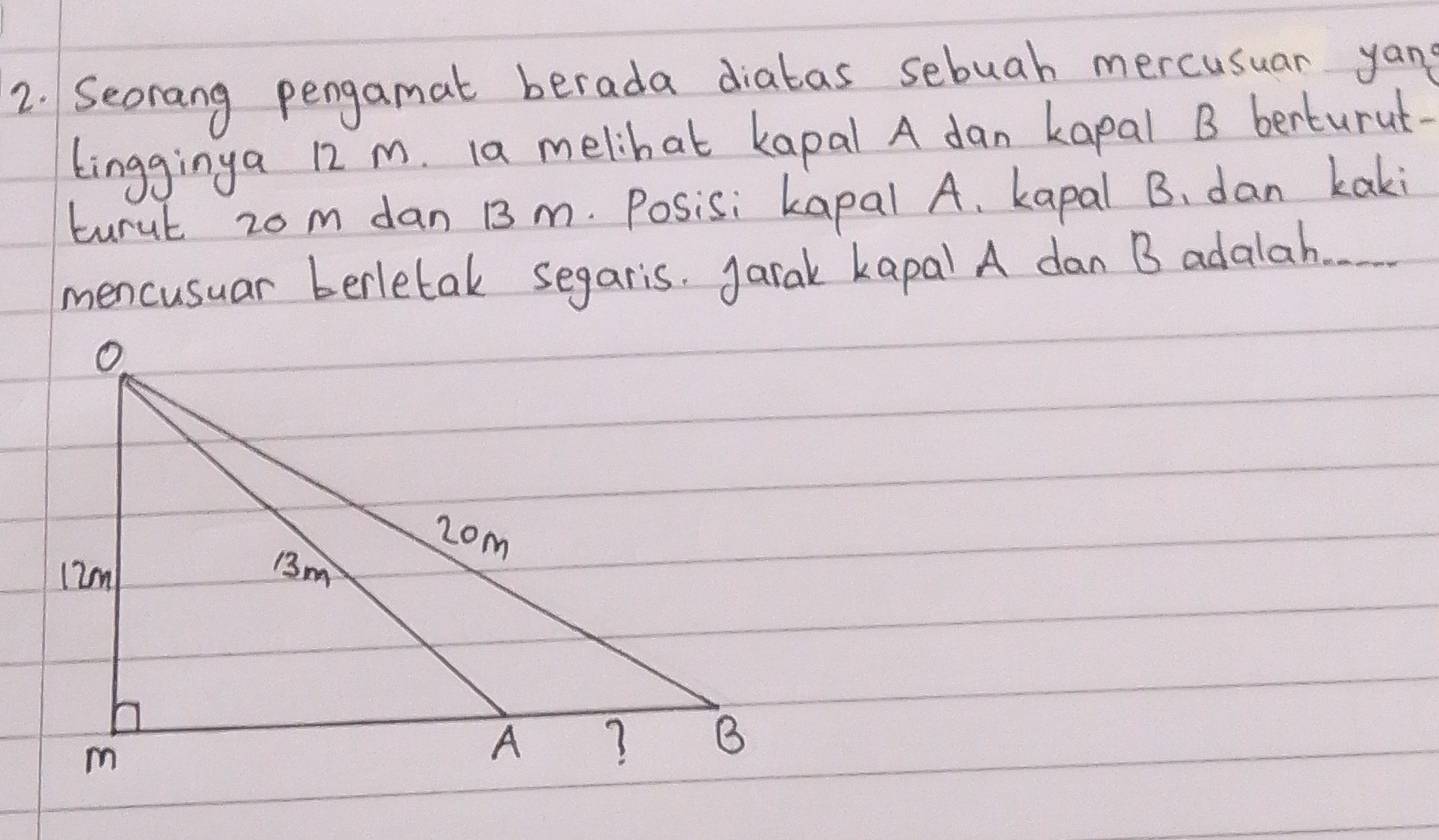 2. Seorang pengamat berada diatas sebuah mercusuar yang
tingginya 12 m. Ia melihat kapal A dan kapal B berturut-
turut 20 m dan 13 m. Posisi kapal A, kapal B, dan kaki
mencusuar berletak segaris. Jarak kapal A dan B adalah......
O
20m
13m
12m
m
A
?
B